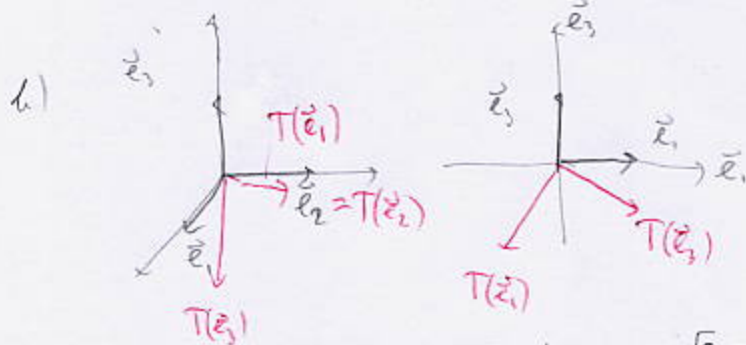 b)
e⃗₃
T(e⃗₁)
e⃗₂ = T(e⃗₂)
e⃗₁
T(e⃗₃)
e⃗₃
e⃗₃
e⃗₁
e⃗₁
T(e⃗₃)
T(e⃗₁)